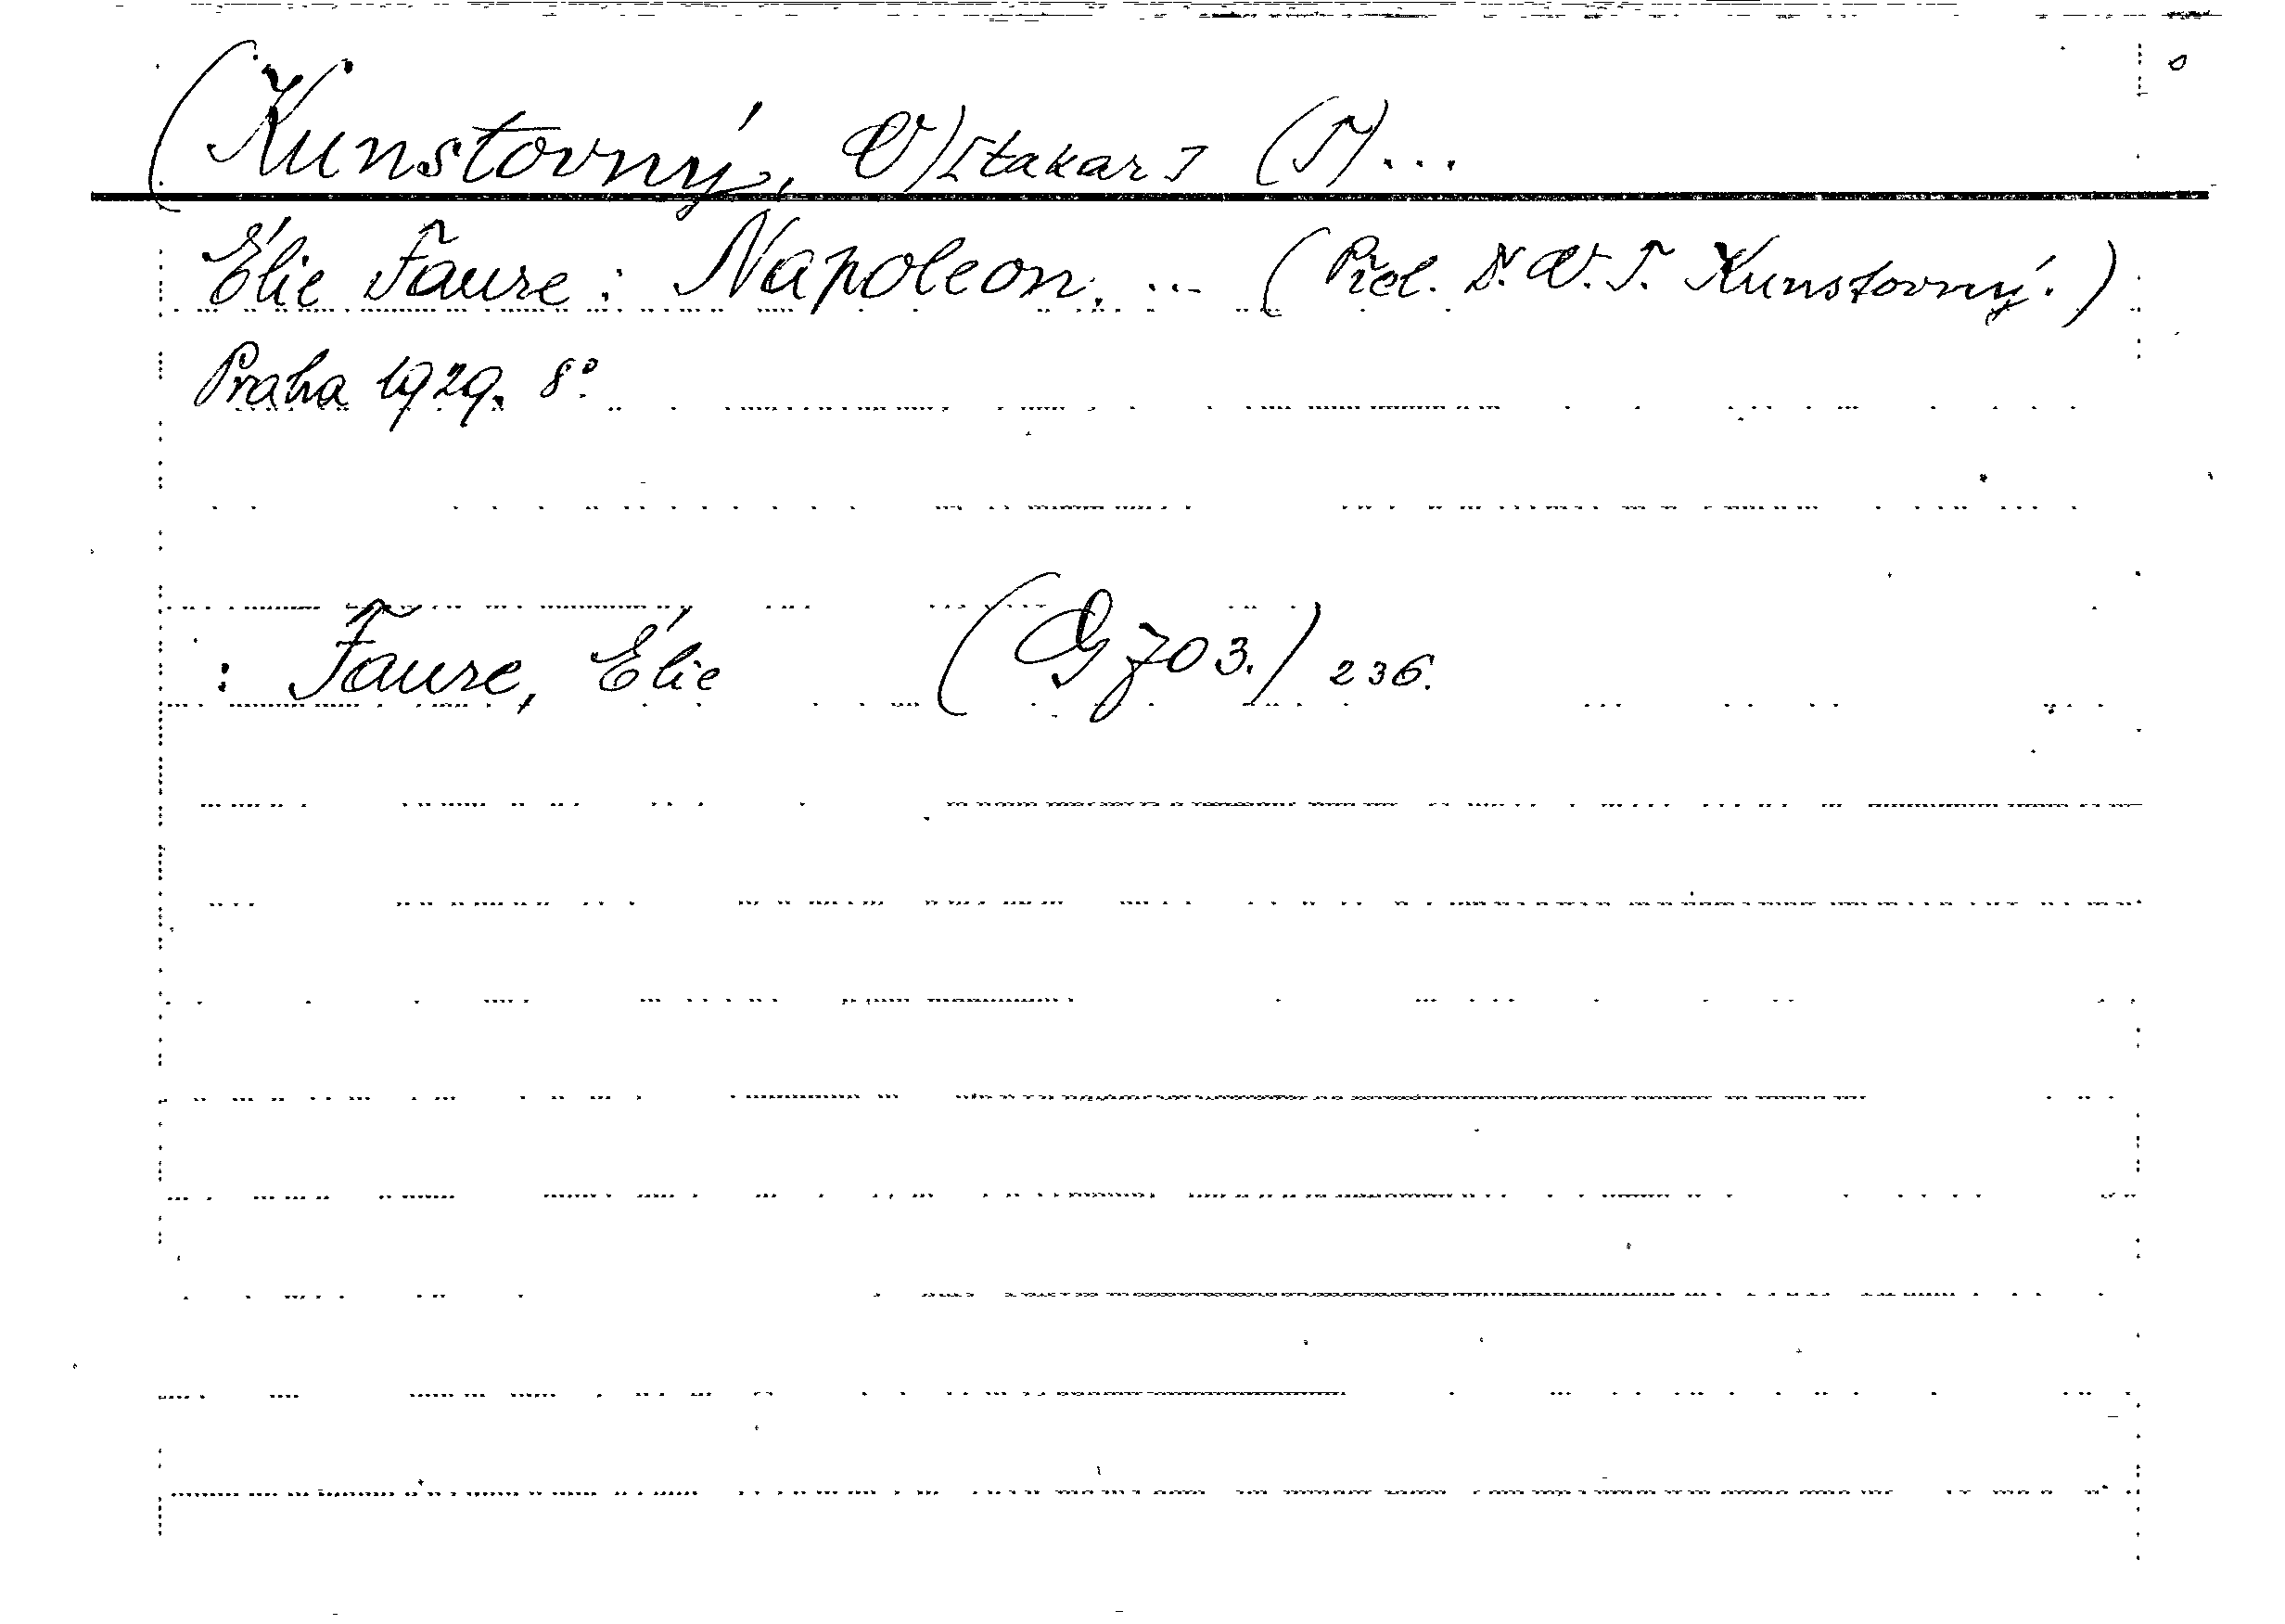 (Kunstovný, O)[takar] (T)...
Élie Faure: Napoleon. ... (Přel. Dr. O. T. Kunstovný.)
Praha 1929. 8°.
: Faure, Élie (G 703.) 236.